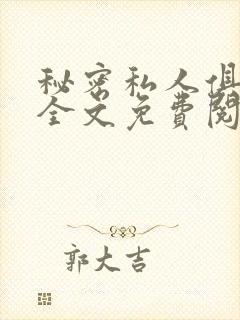 秘密私人俱
全文免费阅
郭大吉